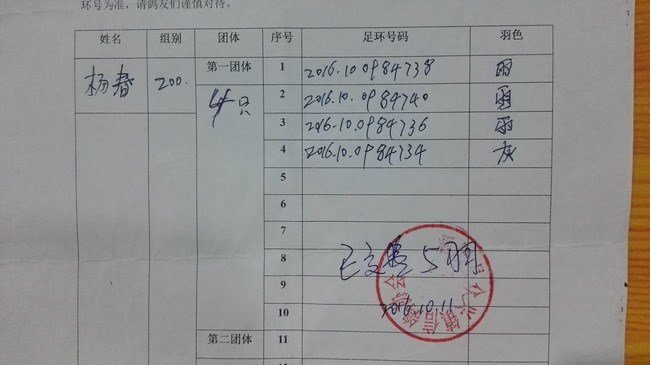 环号为准，请鸽友们谨慎对待。
姓名 组别 团体 序号 足环号码 羽色
杨春 200. 第一团体 1 2016.10 0984738 雨
4只 2 2016.10.0984740 雨
3 2016.10.0984736 雨
4 2016.10.0984734 灰
5
6
7
8 已交 5羽
9
10 2016.10.11
第二团体 11